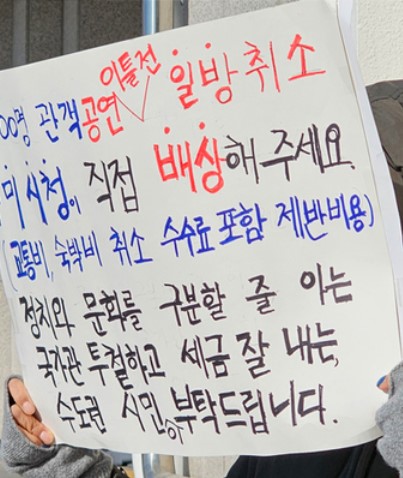 00명 관객 공연 이틀전 일방취소
미시청이 직접 배상해 주세요.
(교통비, 숙박비 취소 수수료 포함 제반비용)
정치와 문화를 구분할 줄 아는
국가관 투철하고 세금 잘 내는,
수도권 시민이 부탁드립니다.